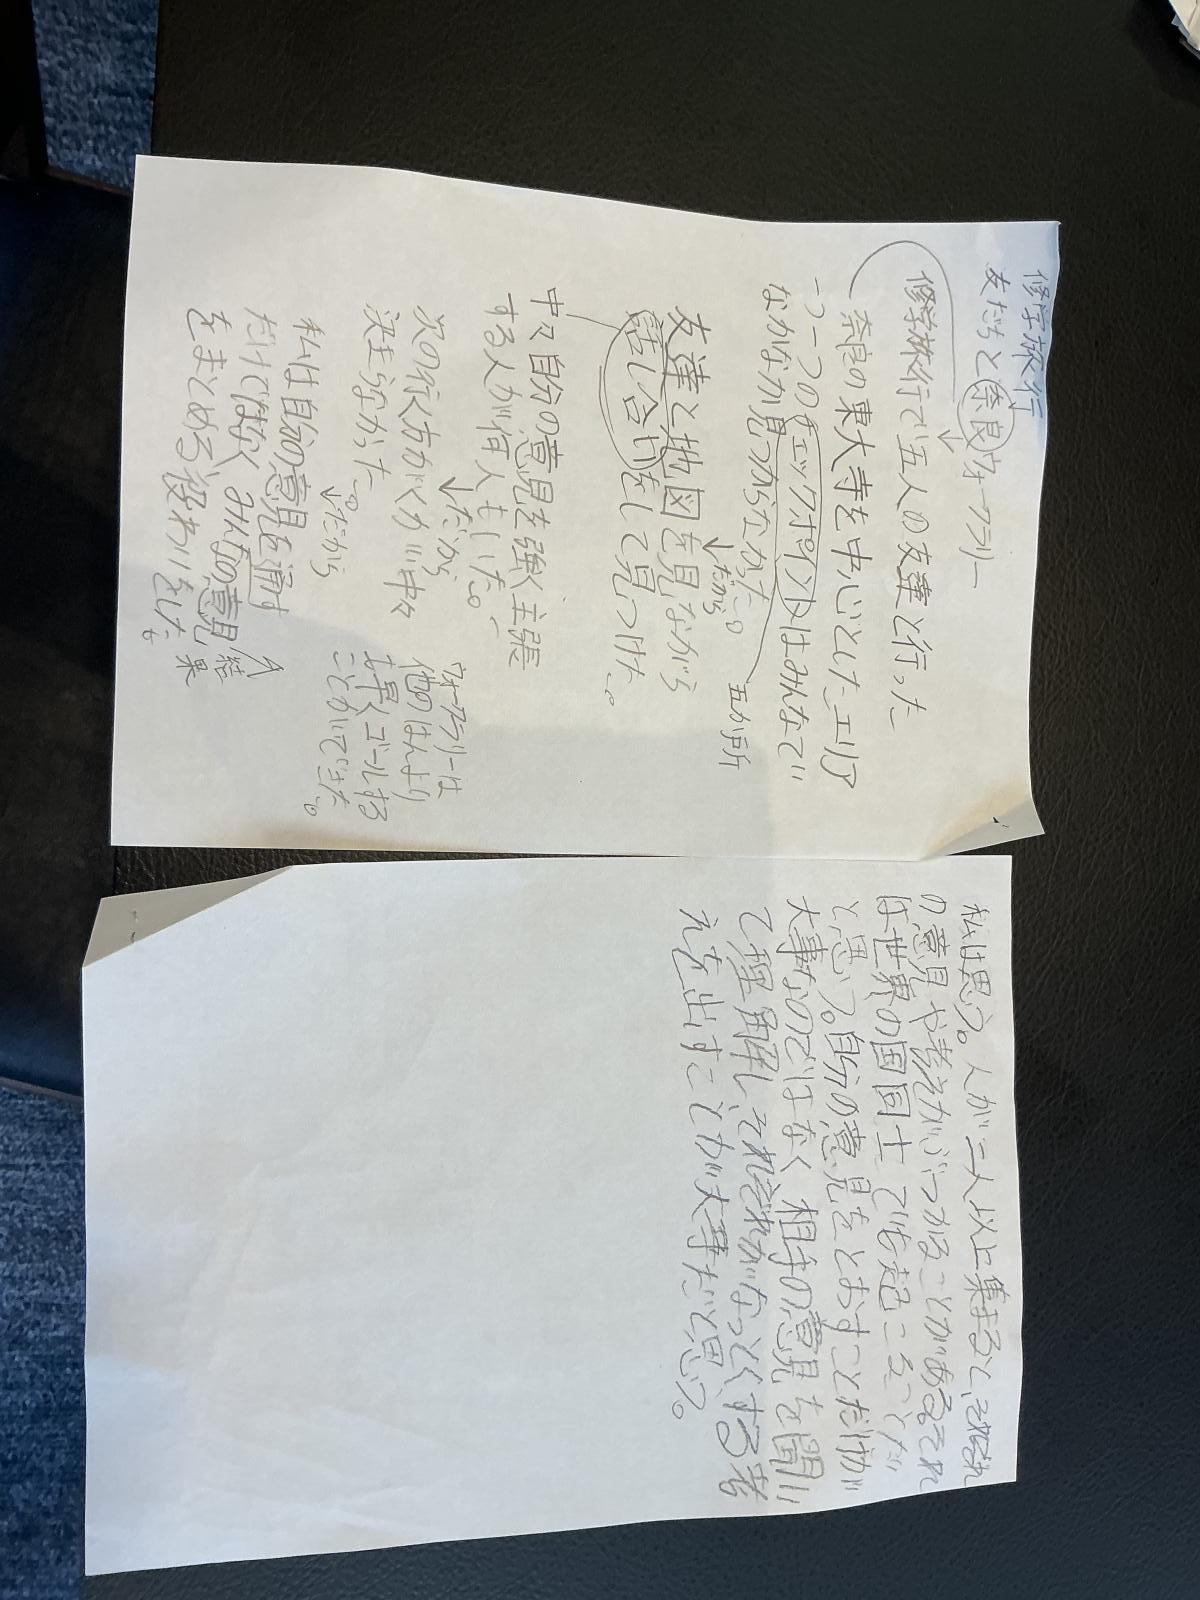 修学旅行
友だちと奈良ウォークラリー
修学旅行で五人の友達と行った
奈良の東大寺を中心としたエリア
一つ一つのチェックポイントはみんなでい
なかなか見つからなかった。
五か所
だから
友達と地図を見ながら
話し合いをして見つけた。
中々自分の意見を強く主張
する人が何人もいた。
だから
次の行く方がくが中々
決まらなかった。
だから
私は自分の意見を通す
だけではなく みんなの意見
をまとめる役わりをした。
結果
ウォークラリーは
他のはんより
も早くゴールする
ことができた。
私は思う。人が二人以上集まると、それぞれ
の意見や考えがぶつかることがあるそれ
は世界の国同士でも起こることだ
と思う。自分の意見をとおすことだけが
大事なのではなく 相手の意見を聞い
て理解し、それぞれがなっとくする考
えを出すことが大事だと思う。